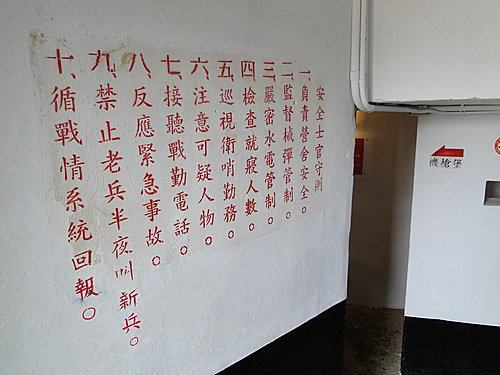 安全士官守則
一、負責營舍安全。
二、監督械彈管制。
三、嚴密水電管制。
四、檢查就寢人數。
五、巡視衛哨勤務。
六、注意可疑人物。
七、接聽戰勤電話。
八、反應緊急事故。
九、禁止老兵半夜叫新兵。
十、循戰情系統回報。
機槍堡